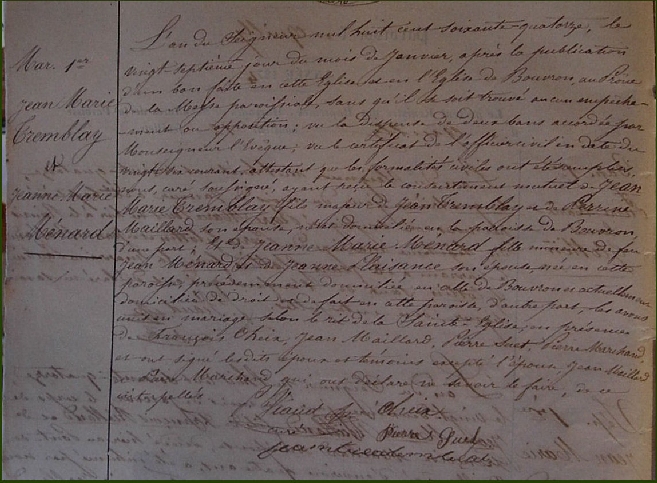 Mar. 1er
Jean Marie
Tremblay
et
Jeanne Marie
Ménard
L'an du Seigneur mil huit cent soixante-quatorze, le
vingt septième jour du mois de Janvier, après la publication
d'un ban faite en cette Eglise et en l'Eglise de Bouvron au Prône
de la Messe paroissiale, sans qu'il se soit trouvé aucun empêche-
ment ou opposition; vu la Dispense de deux bans accordée par
Monseigneur l'Evêque; vu le certificat de l'officier civil en date du
vingt courant, attestant que les formalités civiles ont été remplies,
nous, curé soussigné, ayant reçu le consentement mutuel de Jean
Marie Tremblay, fils majeur de Jean Tremblay et de Perrine
Maillard son épouse, né et domicilié en la paroisse de Bouvron,
d'une part, Et de Jeanne Marie Ménard fille mineure de feu
Jean Ménard et de Jeanne Plaisance son épouse, née en cette
paroisse, précédemment domiciliée en celle de Bouvron et actuellement
domiciliée de droit et de fait en cette paroisse, d'autre part, les avons
unis en mariage selon le rit de la Sainte-Eglise, en présence
de François Jean Maillard, Pierre Pierre Marchand
et ont signé lesdits époux et témoins excepté l'épouse, Jean Maillard
Pierre Marchand qui ont déclaré ne savoir le faire, de ce
interpellés.
Pierre